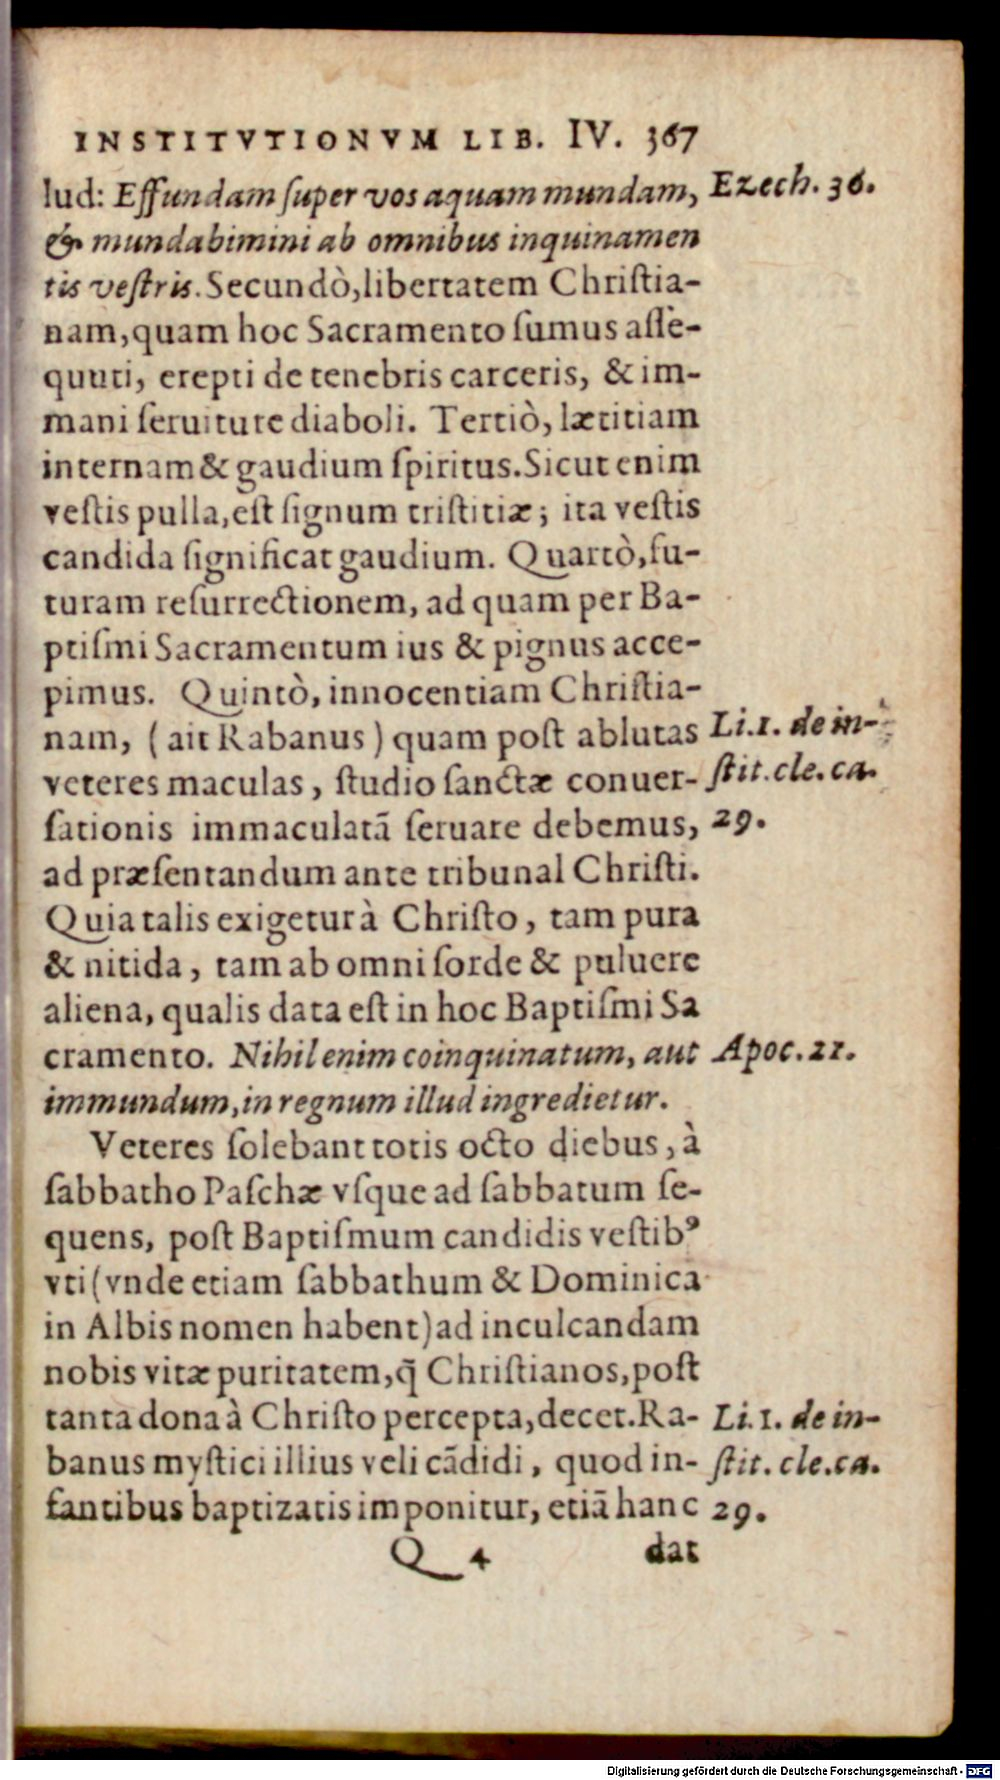 INSTITVTIONVM LIB. IV. 367
lud: Effundam ſuper vos aquam mundam, Ezech. 36.
& mundabimini ab omnibus inquinamen
tis veſtris. Secundò, libertatem Chriſtia-
nam, quam hoc Sacramento ſumus aſſe-
quuti, erepti de tenebris carceris, & im-
mani ſeruitute diaboli. Tertiò, lætitiam
internam & gaudium ſpiritus. Sicut enim
veſtis pulla, eſt ſignum triſtitiæ; ita veſtis
candida ſignificat gaudium. Quartò, fu-
turam reſurrectionem, ad quam per Ba-
ptiſmi Sacramentum ius & pignus acce-
pimus. Quintò, innocentiam Chriſtia-
nam, (ait Rabanus) quam poſt ablutas Li.1. de in-
veteres maculas, ſtudio ſanctæ conuer- ſtit. cle. ca.
ſationis immaculatā ſeruare debemus, 29.
ad præſentandum ante tribunal Chriſti.
Quia talis exigetur à Chriſto, tam pura
& nitida, tam ab omni ſorde & puluere
aliena, qualis data eſt in hoc Baptiſmi Sa
cramento. Nihil enim coinquinatum, aut Apoc. 21.
immundum, in regnum illud ingredietur.
Veteres ſolebant totis octo diebus, à
ſabbatho Paſchæ vſque ad ſabbatum ſe-
quens, poſt Baptiſmum candidis veſtibꝰ
vti (vnde etiam ſabbathum & Dominica
in Albis nomen habent) ad inculcandam
nobis vitæ puritatem, q̃ Chriſtianos, poſt
tanta dona à Chriſto percepta, decet. Ra- Li.1. de in-
banus myſtici illius veli cãdidi, quod in- ſtit. cle. ca.
fantibus baptizatis imponitur, etiã hanc 29.
Q 4 dat
Digitalisierung gefördert durch die Deutsche Forschungsgemeinschaft - DFG